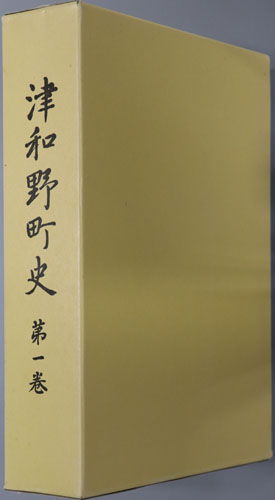 津和野町史 第一巻